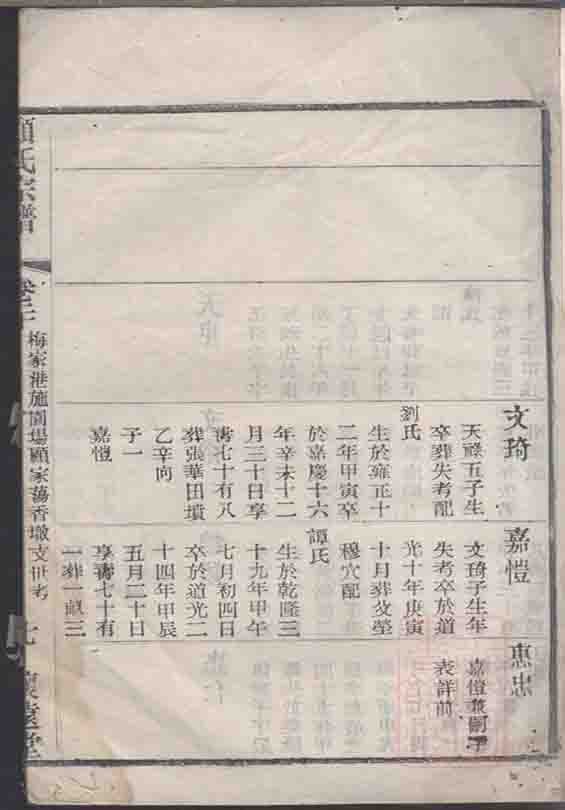 文琦
天祿五子生
卒葬失考配
劉氏
生於雍正十
二年甲寅卒
於嘉慶十六
年辛未十二
月三十日享
壽七十有八
葬張華田墳
乙辛向
子一
嘉愷
嘉愷
文琦子生年
失考卒於道
光十年庚寅
十月葬父塋
穆穴配
譚氏
生於乾隆三
十九年甲午
七月初四日
卒於道光二
十四年甲辰
五月二十日
享壽七十有
一葬一
惠忠
嘉愷兼嗣子
表詳前
顧氏宗譜
卷
梅家港施圍場顧家蕩香墩支世考
七